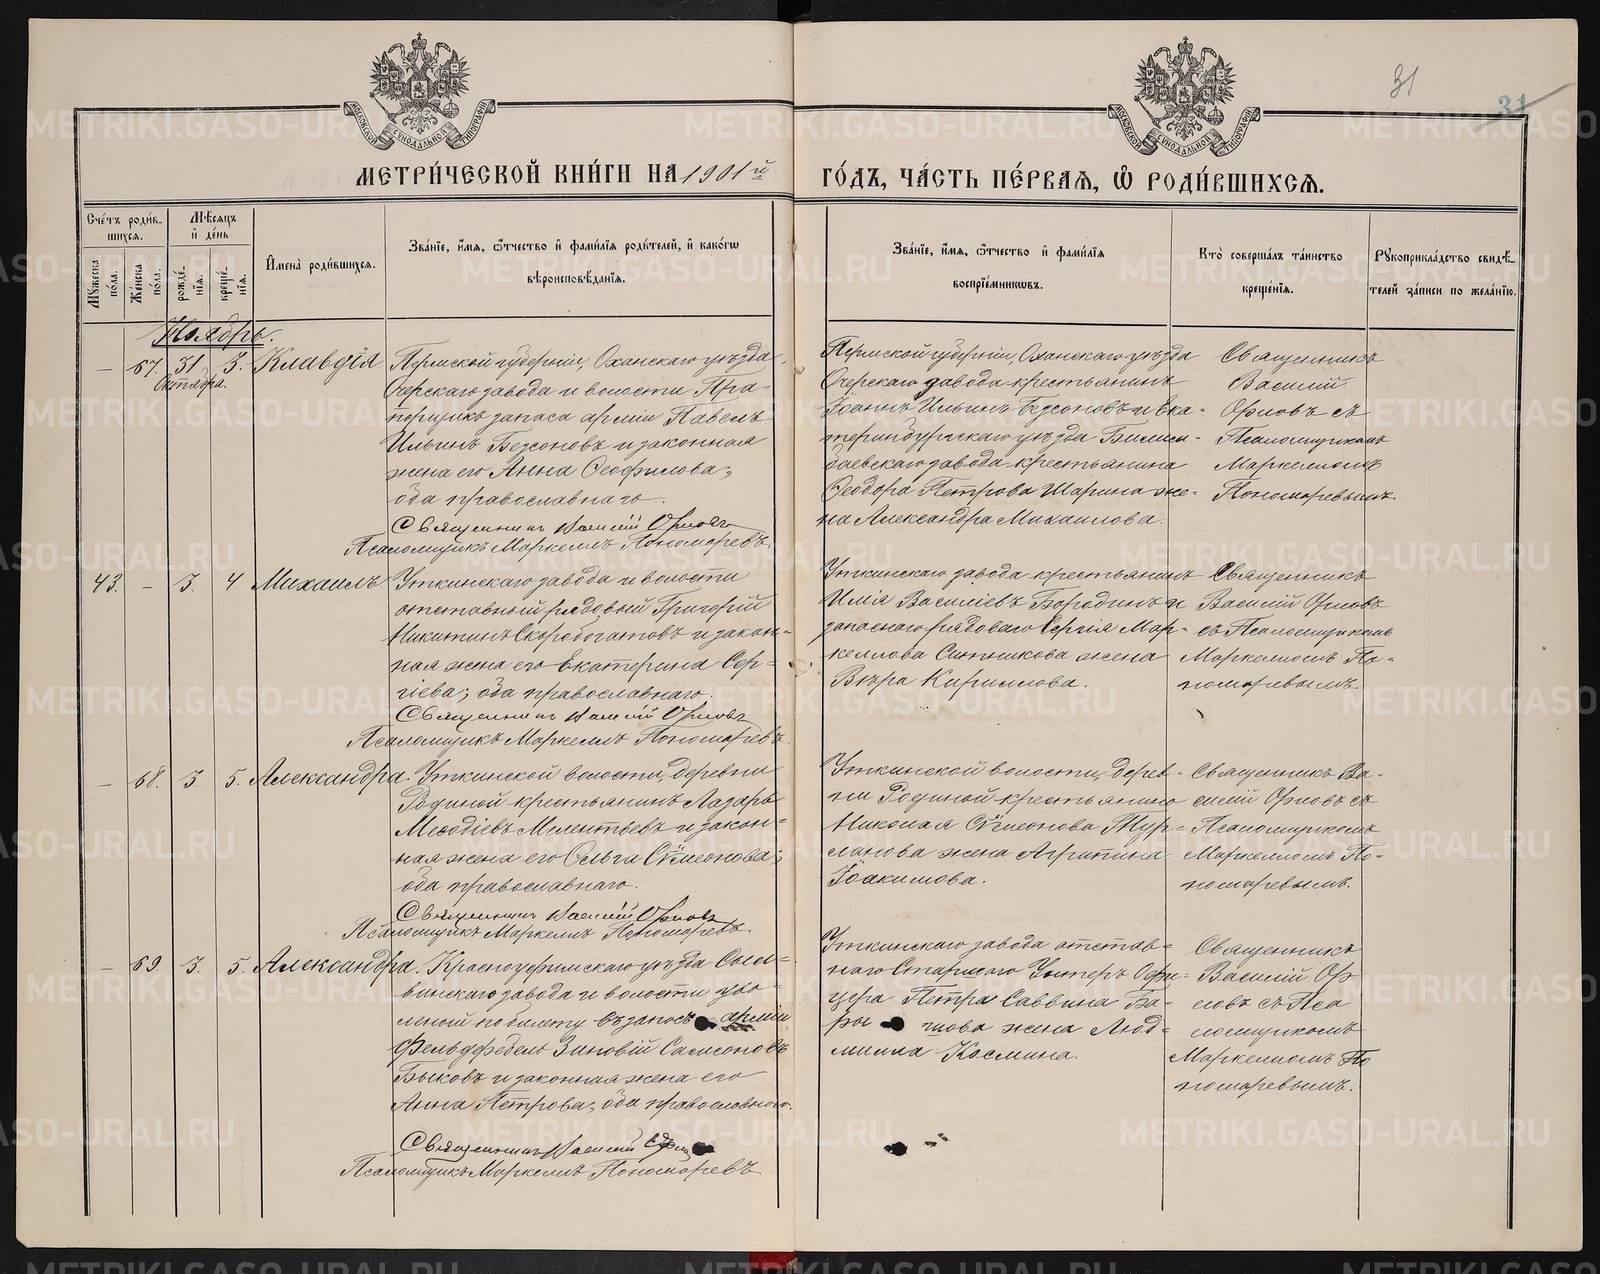 31
31
МЕТРИ́ЧЕСКОЙ КНИ́ГИ НА 1901й
ГО́ДЪ, ЧА́СТЬ ПЕ́РВАЯ, Ѡ҆ РОДИ́ВШИХСЯ.
Сче́тъ роди́в-
шихся.
Мѣ́сяцъ
и҆ де́нь
Му́жеска по́ла.
Же́нска по́ла.
рожде́-нїя.
креще́-нїя.
И҆мена̀ роди́вшихся.
Зва́нїе, и҆́мя, ѻ҆́тчество и҆ фами́лїя роди́телей, и҆ како́гѡ
вѣроисповѣ́данїя.
Зва́нїе, и҆́мя, ѻ҆́тчество и҆ фами́лїя
воспрїе́мникѡвъ.
Кто̀ соверша́лъ та́инство
креще́нїя.
Рꙋкоприкла́дство свидѣ́-
телей за́писи по жела́нїю.
Ноябрь.
— 67. 31 3. Клавдія
Октября.
Пермской губерніи, Оханскаго уѣзда
Очерскаго завода и волости Пра-
порщикъ запаса арміи Павелъ
Ильинъ Безсоновъ и законная
жена его Анна Ѳеофилова;
оба православнаго.
Священникъ Василій Орловъ
Псаломщикъ Маркеллъ Пономаревъ.
Пермской губерніи, Оханскаго уѣзда
Очерскаго завода крестьянинъ
Іоаннъ Ильинъ Безсоновъ и Ека-
теринбургскаго уѣзда Билим-
баевскаго завода крестьянина
Ѳеодора Петрова Шарина же-
на Александра Михаилова.
Священникъ
Василій
Орловъ съ
Псаломщикомъ
Маркелломъ
Пономаревымъ.
43. — 3. 4 Михаилъ
Уткинскаго завода и волости
отставный рядовый Григорій
Никитинъ Скоробогатовъ и закон-
ная жена его Екатерина Сер-
гіева; оба православнаго.
Священникъ Василій Орловъ
Псаломщикъ Маркеллъ Пономаревъ.
Уткинскаго завода крестьянинъ
Илія Василіевъ Бородинъ и
запаснаго рядоваго Сергія Мар-
келлова Ситникова жена
Вѣра Кириллова.
Священникъ
Василій Орловъ
съ Псаломщикомъ
Маркелломъ По-
номаревымъ
— 68. 3 5. Александра.
Уткинской волости, деревни
Родиной крестьянинъ Лазарь
Меѳодіевъ Мелентьевъ и закон-
ная жена его Ольга Сѵмеонова;
оба православнаго.
Священникъ Василій Орловъ
Псаломщикъ Маркеллъ Пономаревъ.
Уткинской волости, дерев-
ни Родиной крестьянина
Николая Сѵмеонова
жена Агрипина
Іоакимова.
Священникъ Ва-
силій Орловъ съ
Псаломщикомъ
Маркелломъ По-
номаревымъ.
— 69 3. 5. Александра.
Красноуфимскаго уѣзда Сыл-
винскаго завода и волости уво-
леный по билету въ запасъ арміи
Фельдфебель Зиновій Самсоновъ
Быковъ и законная жена его
Анна Петрова; оба православнаго.
Священникъ Василій
Псаломщикъ Маркеллъ Пономаревъ
Уткинскаго завода отстав-
наго Старшаго Унтеръ Офи-
цера Петра Саввина Ба-
жена Люд-
милла Космина.
Священникъ
Василій Ор
ловъ съ Пса
ломщикомъ
Маркелломъ По
номаревымъ.